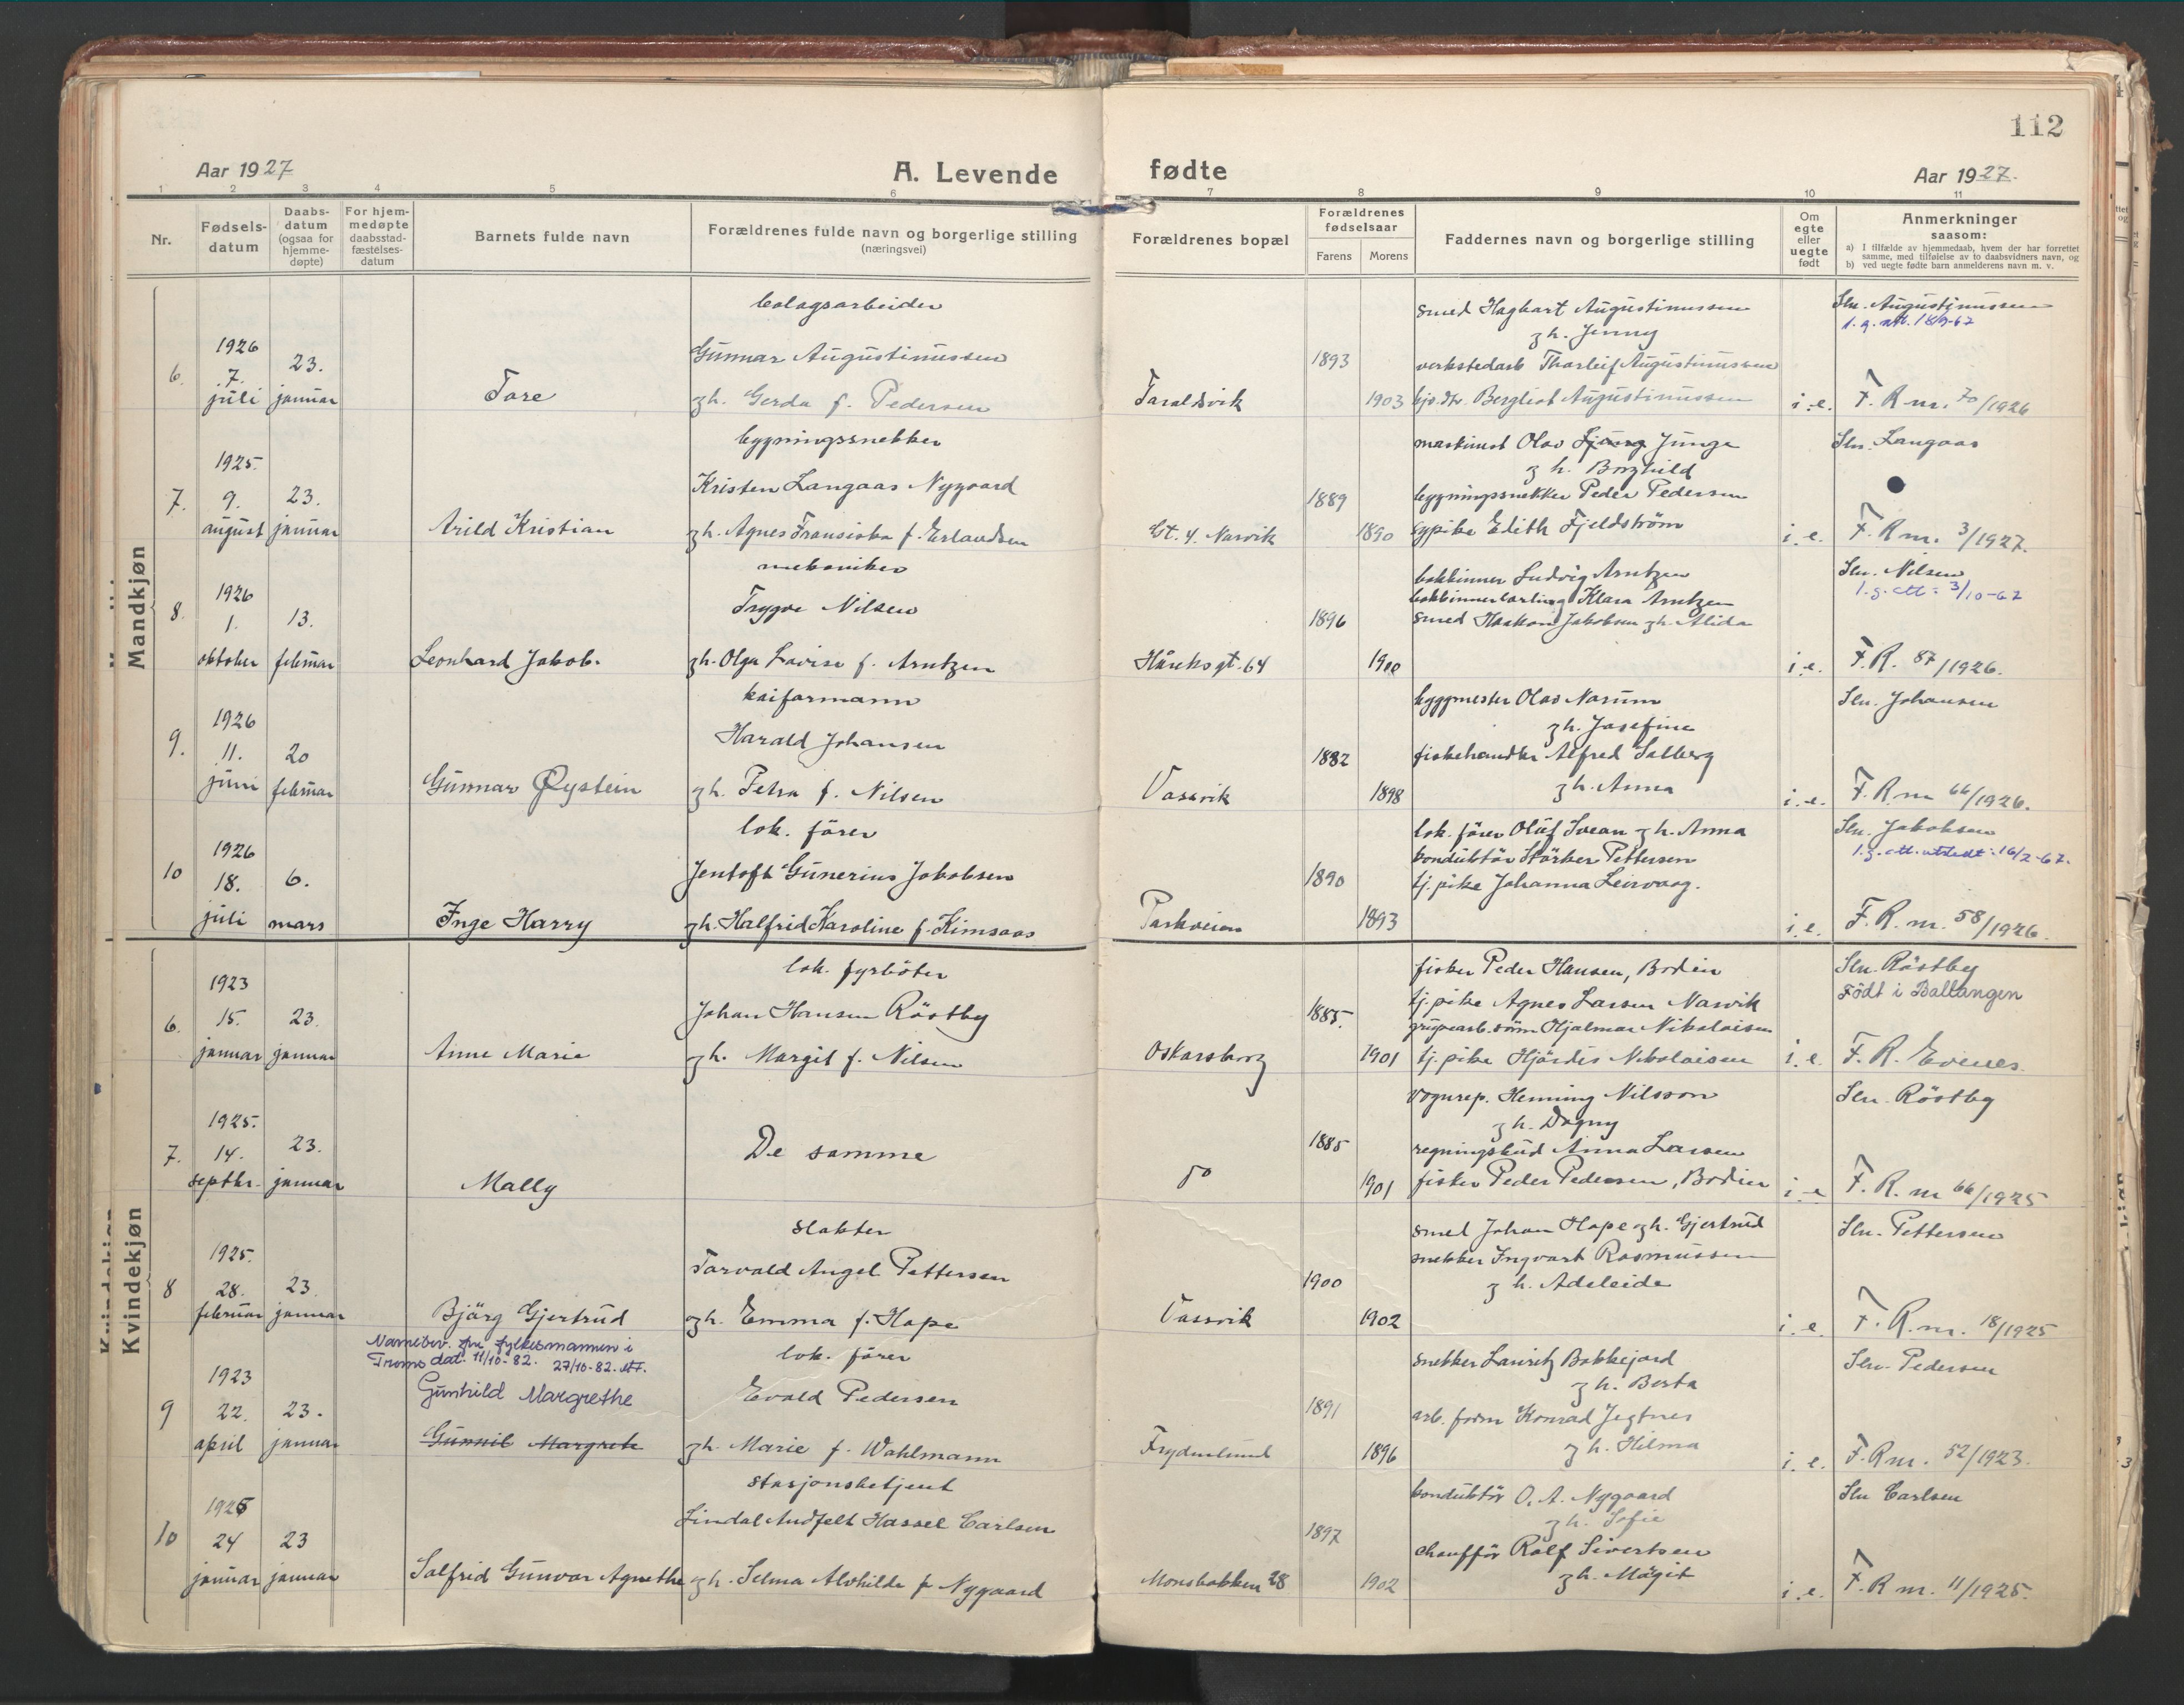 112
Aar 1927
A. Levende fødte
Aar 1927.
1 2 3 4 5 6 7 8 9 10 11
Nr.
Fødselsdatum
Daabsdatum (ogsaa for hjemmedøpte)
For hjemmedøpte daabsstadfæstelsesdatum
Barnets fulde navn
Forældrenes fulde navn og borgerlige stilling (næringsvei)
Forældrenes bopæl
Forældrenes fødselsaar
Farens Morens
Faddernes navn og borgerlige stilling
Om egte eller uegte født
Anmerkninger saasom:
a) I tilfælde av hjemmedaab, hvem der har forrettet samme, med tilføielse av to daabsvidners navn, og
b) ved uegte fødte barn anmelderens navn m. v.
Mandkjøn
6. 1926 7. juli
23. januar
Tore
bolagsarbeider
Gunnar Augustinussen
gh. Gerda f. Pedersen
Taraldsvik
1893
1903
smed Hagbart Augustinussen
gh. Jenny
verkstedarb Thorleif Augustinussen
Bergliot Augustinussen
i.e.
Sln. Augustinussen
F. R nr. 70/1926
7. 1925. 9. august
23. januar
Arild Kristian
bygningssnekker
Kristen Langaas Nygaard
gh. Agnes Fransiska f. Erlandsen
Gt. 4. Narvik
1889
1890
maskinist Olav Ljung Junge
gh. Borghild
bygningssnekker Peder Pedersen
sypike Edith Fjeldström
i.e.
Sln. Langaas
F. R nr. 3/1927.
8. 1926 1. oktober
13. februar
Leonhard Jakob.
mekaniker
Trygve Nilsen
gh. Olga Lovise f. Arntzen
Håreksgt. 64
1896
1900
bokbinner Ludvig Arntzen
bokbinnerlærling Klara Arntzen
smed Haakon Jakobsen gh. Alida
i.e.
Sln. Nilsen
l.g. att. 3/10-62
F. R. 87/1926.
9. 1926 11. juni
20 februar
Gunnar Øystein
kaiformann
Harald Johansen
gh. Petra f. Nilsen
Vassvik
1882
1898
byggmester Olav Norum
gh. Josefine
fiskehandler Alfred Solberg
gh. Anna
i.e.
Sln. Johansen
F. R. nr 66/1926.
10 1926 18. juli
6. mars
Inge Harry
lok. förer
Jentoft Gunerius Jakobsen
gh. Halfrid Karoline f. Kimsaas
Parkveien
1890
1893
lok. förer Oluf Svean gh. Anna
konduktör Störker Pettersen
tj. pike Johanna Leirvaag.
i.e.
Sln. Jakobsen
l.g. att. utstedt: 16/2-67.
F. R. nr. 58/1926.
Kvindekjøn
6. 1923 15. januar
23. januar
Anne Marie
lok. fyrböter
Johan Hansen Röstby
gh. Margit f. Nilsen
Oskarsborg
1885.
1901
fisker Peder Hansen, Bodin
tj. pike Agnes Larsen Narvik
gruvearb. sönn Hjalmar Nikolaisen
tj. pike Hjördis Nikolaisen
i.e.
Sln. Röstby
Födt i Ballangen
F. R. Evenes
7. 1925. 14. septbr.
23. januar
Mally
De samme
do
1885
1901
Vognrep. Henning Nilsson
gh. Dagny
regningsbud Anna Larsen
fisker Peder Pedersen, Bodin
i.e
Sln. Röstby
F. R. nr 66/1925
8 1925. 28. februar
23 januar
Bjørg Gjertrud
slakter
Torvald Angel Pettersen
gh. Emma f. Hope
Vassvik
1900
1902
smed Johan Hope gh. Gjertrud
snekker Ingvart Rasmussen
gh. Adeleide
i.e.
Sln. Pettersen
F. R. nr. 18/1925
Navnebev. fra fylkesmannen i
Troms dat. 11/10-82. 27/10-82.
9 1923 22. april
23. januar
Gunhild Margrethe
Gunnil Margrete
lok. förer
Evald Pedersen
gh. Marie f. Wahlmann
Frydenlund
1891
1896
snekker Lauritz Bakkejord
gh. Berta
arb. form Konrad Jegtnes
gh. Hilma
i.e.
Sln. Pedersen
F. R nr. 52/1923.
10 1925 24 januar
23 januar
Solfrid Gunvor Agnethe
stasjonsbetjent
Lindal Audfelt Hassel Carlsen
gh. Selma Alvhilde f. Nygaard
Monsbakken 28
1897
1902
konduktör O. A. Nygaard
gh. Sofie
chauffør Rolf Sivertsen
gh. Magit
i.e.
Sln Carlsen
F. R nr. 11/1925.